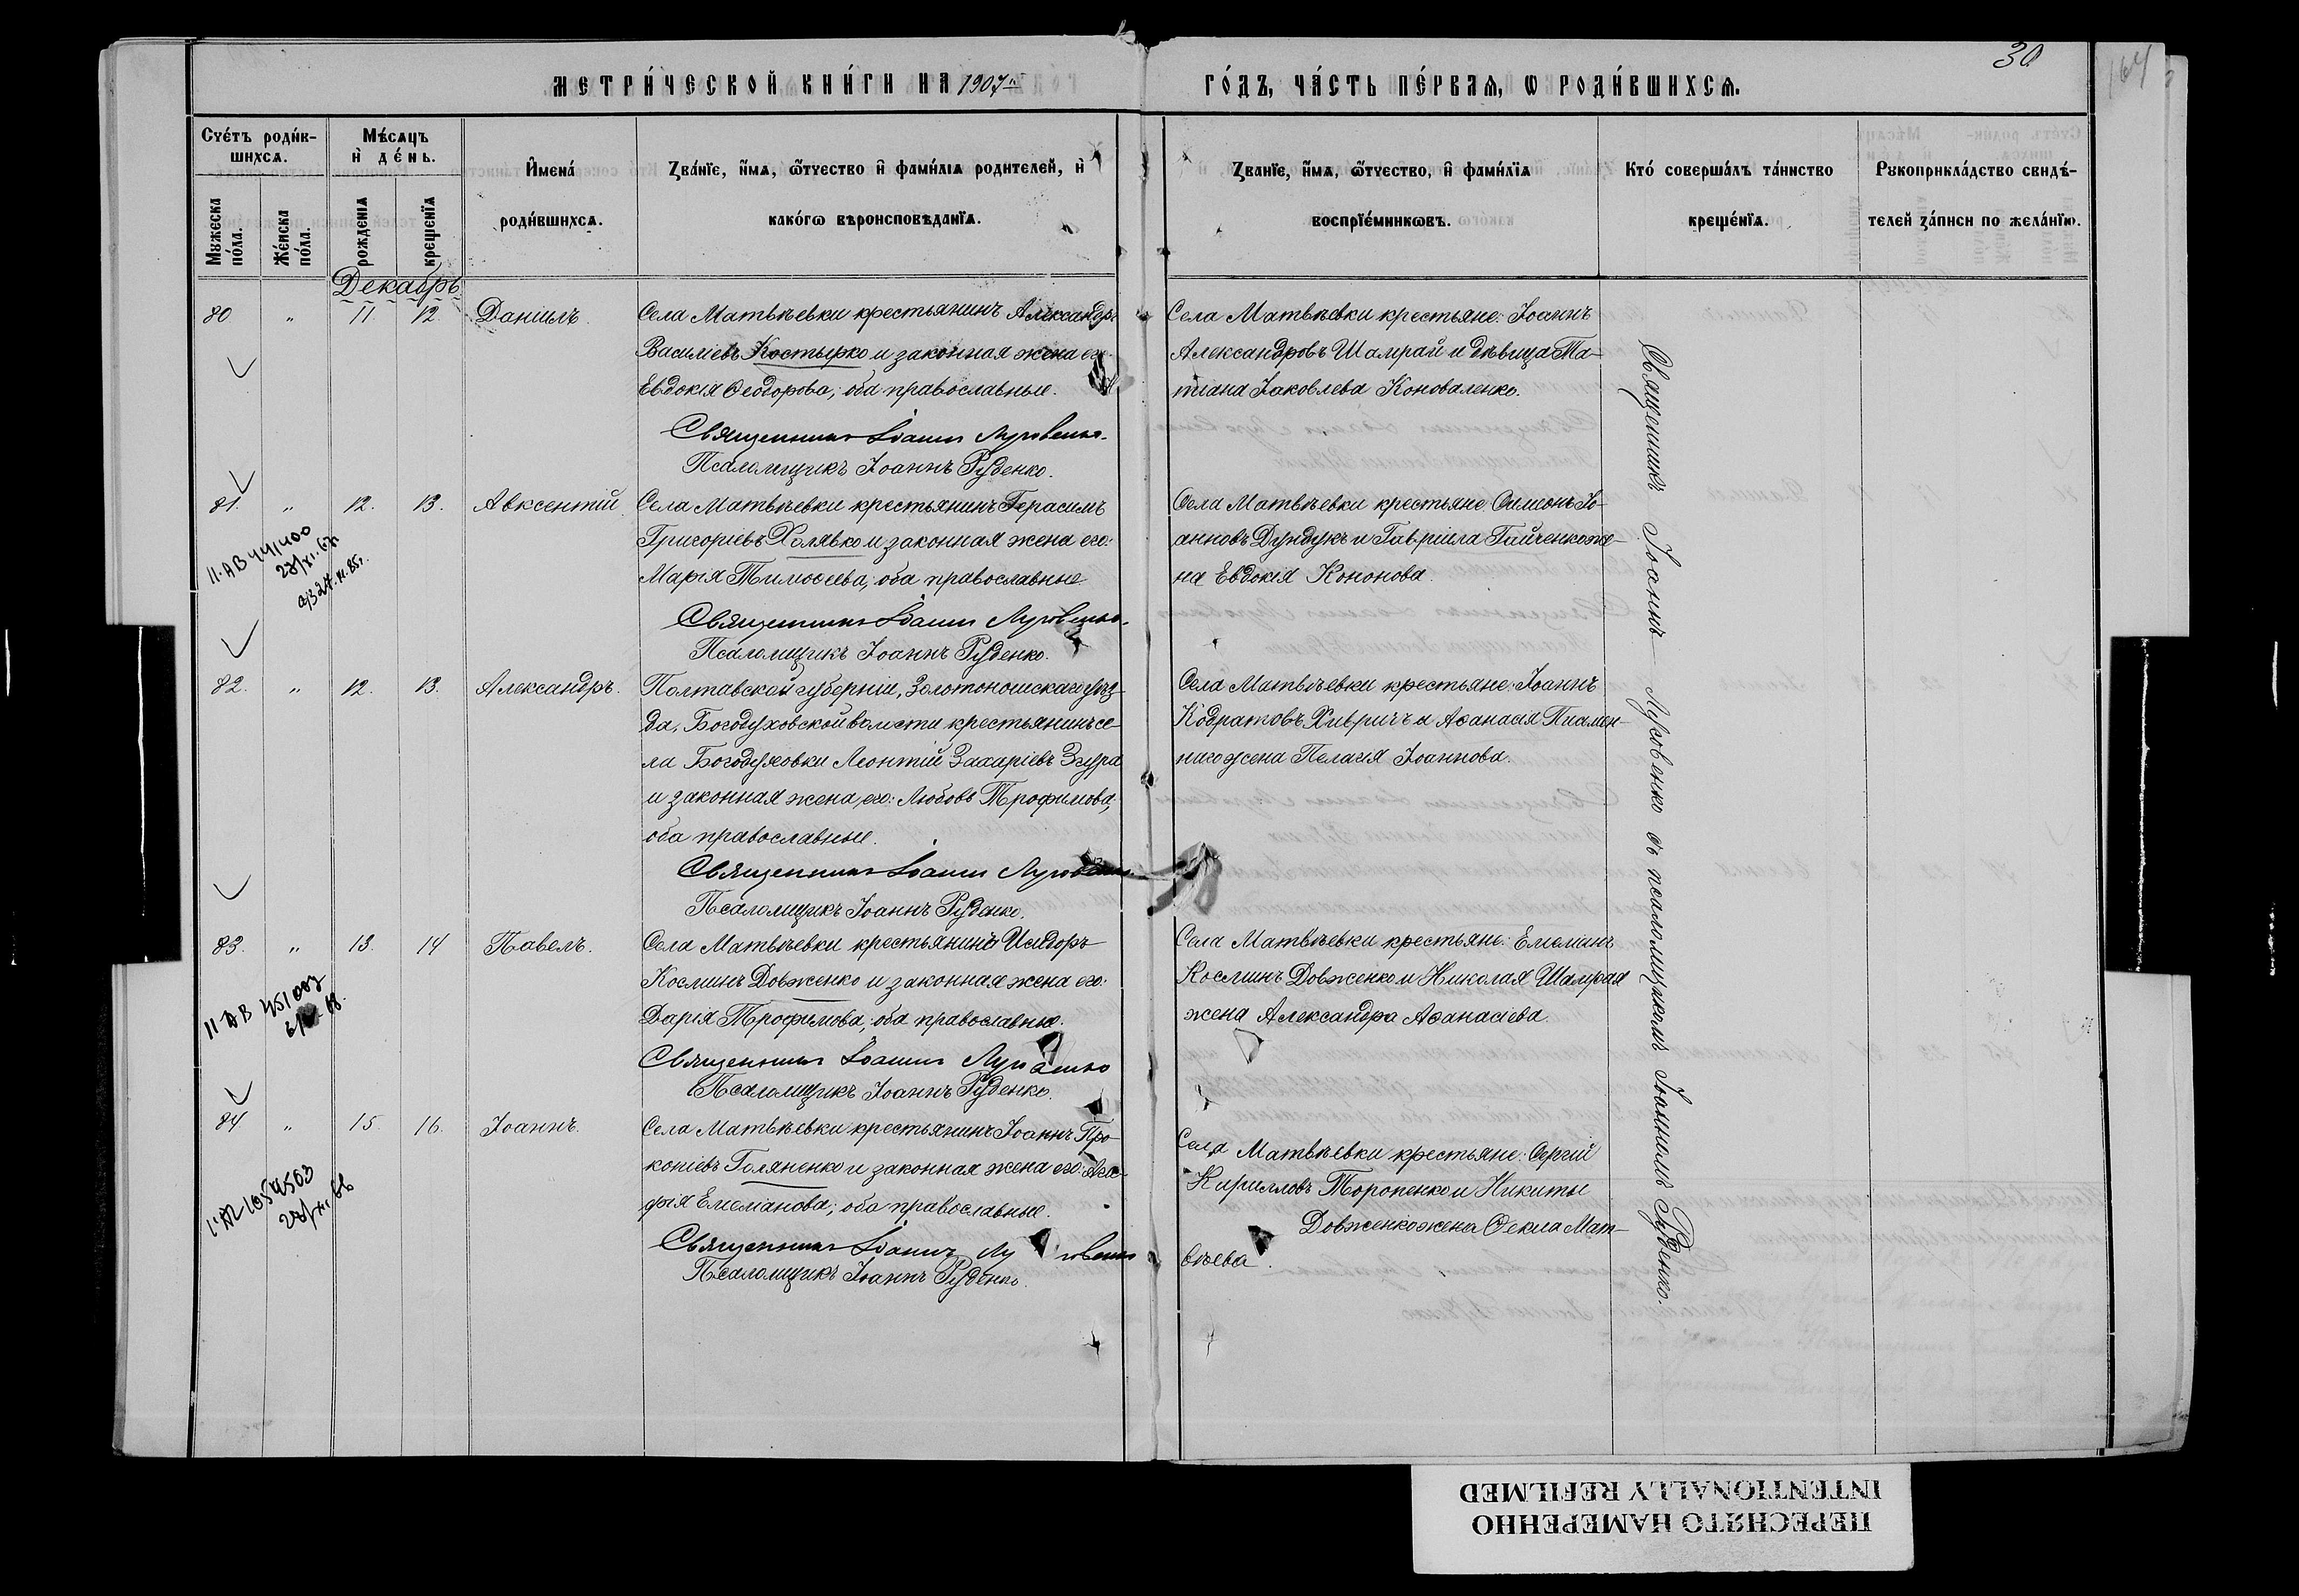 МЕТРИ́ЧЕСКОЙ КНИ́ГИ НА 1907й
ГО́ДЪ, ЧА́СТЬ ПЕ́РВАѦ, Ѡ РОДИ́ВШИХСѦ.
30
164
Сче́тъ роди́в-
шихсѧ.
Мꙋжеска
по́ла.
Же́нска
по́ла.
Мѣ́сѧцъ
и҆ де́нь.
рожденїѧ
крещенїѧ
И҆мена́
роди́вшихсѧ.
Зва́нїе, и҆́мѧ, ѻ҆́тчество и҆ фами́лїѧ родителей, и҆
како́гѡ вѣроисповѣданїѧ.
Званїе, и҆́мѧ, ѻ҆́тчество, и҆ фами́лїѧ
воспрїе́мниковъ.
Кто́ соверша́лъ та́инство
креще́нїѧ.
Рꙋкоприкла́дство свидѣ́-
телей за́писи по жела́нїю.
Декабрь
80 " 11. 12. Даніилъ.
Села Матвѣевки крестьянинъ Александръ
Василіевъ Костырко и законная жена его:
Евдокія Ѳеодорова; оба православные.
Священникъ Іоаннъ Луговенко.
Псаломщикъ Іоаннъ Руденко.
Села Матвѣевки крестьяне: Іоаннъ
Александровъ Шамрай и дѣвица Та-
тіана Іаковлева Коноваленко.
81. " 12. 13. Авксентій
Села Матвѣевки крестьянинъ Герасимъ
Григоріевъ Холявко и законная жена его:
Марія Тимоѳеева; оба православные.
Священникъ Іоаннъ Луговенко.
Псаломщикъ Іоаннъ Руденко.
Села Матвѣевки крестьяне: Симеонъ Іо-
анновъ Дундукъ и Гавріила Гайченко же-
на Евдокія Кононова.
II-АВ 441400
82. " 12. 13. Александръ.
Полтавской губерніи, Золотоношскаго уѣз-
да, Богодуховской волости крестьянинъ се-
ла Богодуховки Леонтій Захаріевъ Згура
и законная жена его: Любовь Трофимова;
оба православные.
Священникъ Іоаннъ Луговенко.
Псаломщикъ Іоаннъ Руденко.
Села Матвѣевки крестьяне: Іоаннъ
Кодратовъ Хивричъ и Аѳанасія Писмен-
наго жена Пелагія Іоаннова.
83. " 13. 14 Павелъ.
Села Матвѣевки крестьянинъ Исидоръ
Косминъ Довженко и законная жена его:
Дарія Трофимова; оба православные.
Священникъ Іоаннъ Луговенко
Псаломщикъ Іоаннъ Руденко.
Села Матвѣевки крестьяне: Емеліанъ
Косминъ Довженко и Николая Шамрая
жена Александра Аѳанасіева.
II-АВ 451007
84 " 15. 16. Іоаннъ.
Села Матвѣевки крестьянинъ Іоаннъ Про-
копіевъ Голяненко и законная жена его: Ага-
фія Емеліанова; оба православные.
Священникъ Іоаннъ Луговенко
Псаломщикъ Іоаннъ Руденко.
Села Матвѣевки крестьяне: Сергій
Кирилловъ Торопенко и Никиты
Довженко жена Ѳекла Мат-
вѣева.
Священникъ Іоаннъ Луговенко съ псаломщикомъ Іоанномъ Руденко.
ПЕРЕСНЯТО НАМЕРЕННО
INTENTIONALLY REFILMED